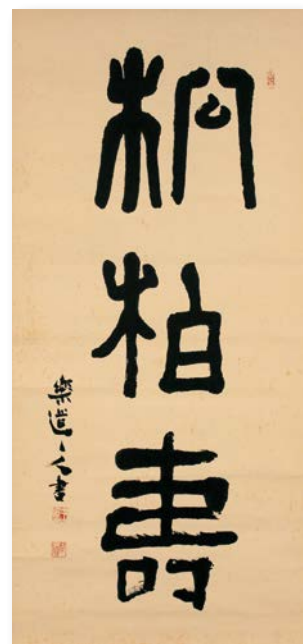 松柏壽
樂道々人書